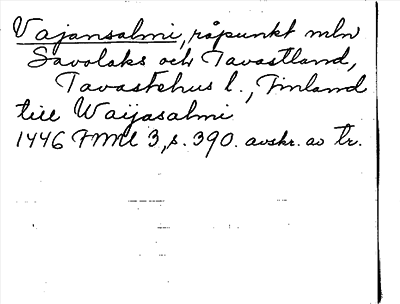 Vajansalmi, råpunkt mln
Savolaks och Tavastland,
Tavastehus l., Finland
till Waijasalmi
1446 FMU 3, s. 390. avskr. av tr.